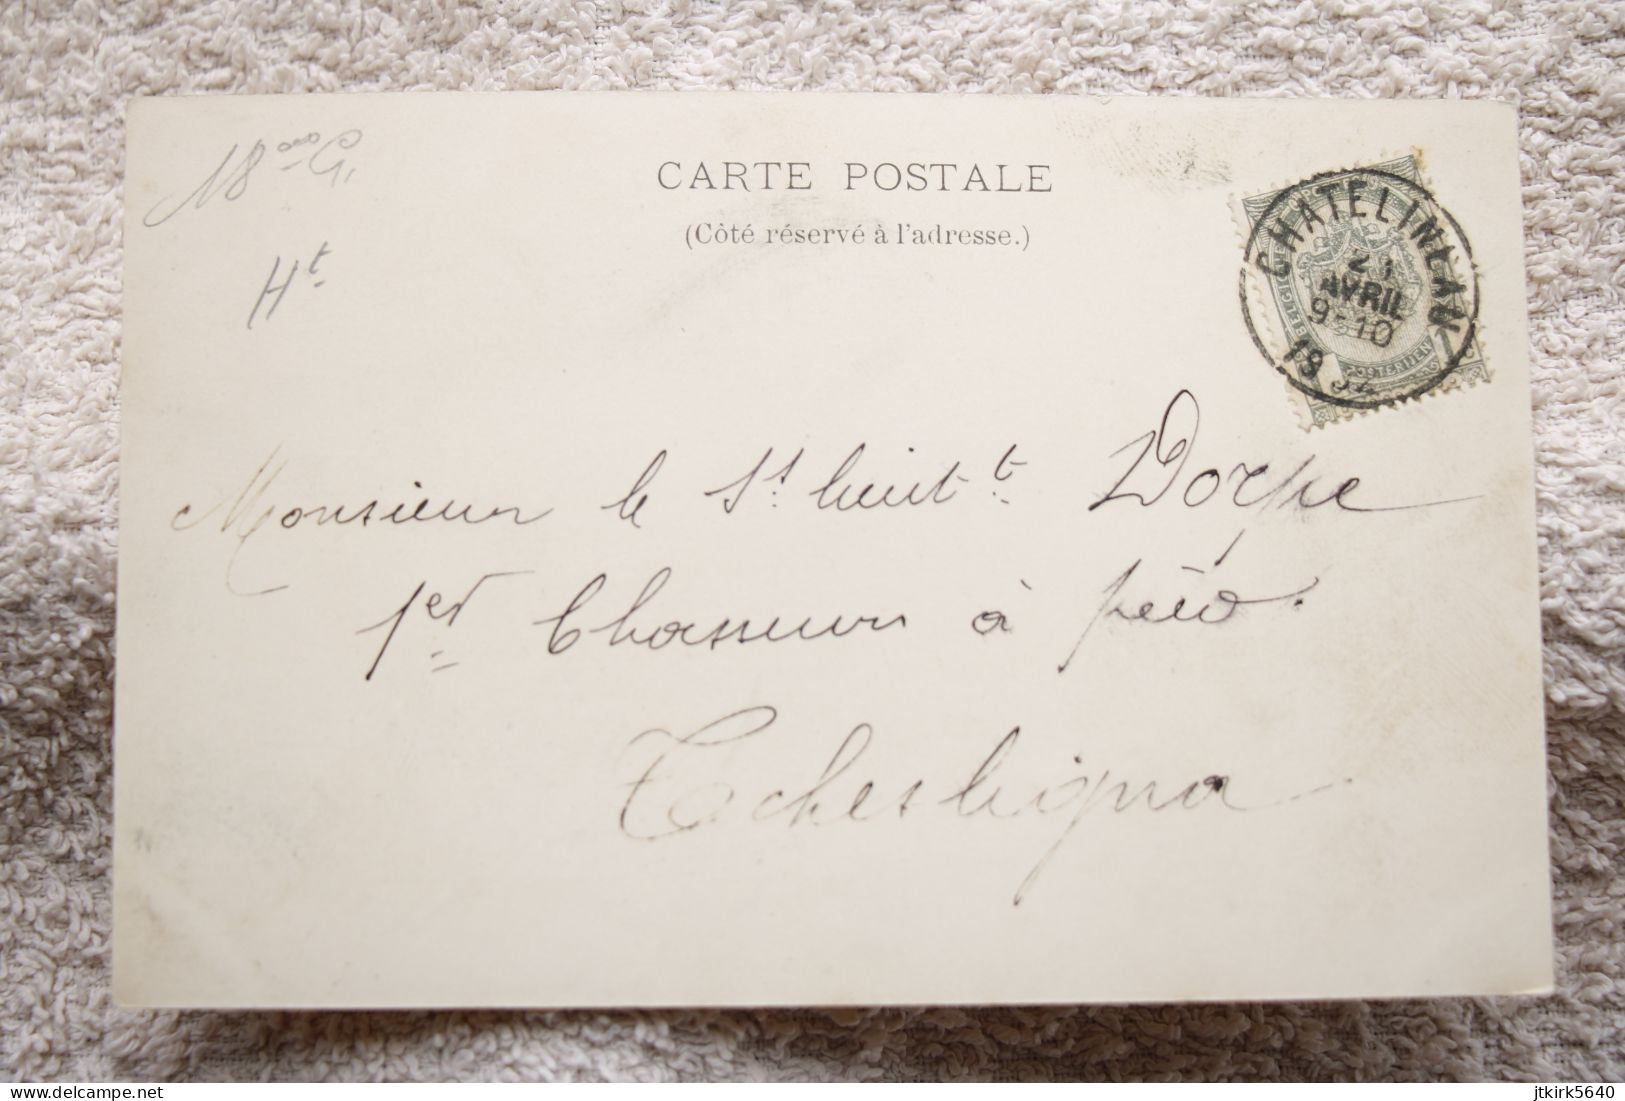 18 ooo G,
Ht
CARTE POSTALE
(Côté réservé à l'adresse.)
CHATELINEAU
AVRIL
9-10
19
BELGIQUE
POSTERIJEN
1
Monsieur le St. lieut.t Dorpe
1er Chasseurs à pied.
Tchesligna
delcampe.net
jtkirk5640